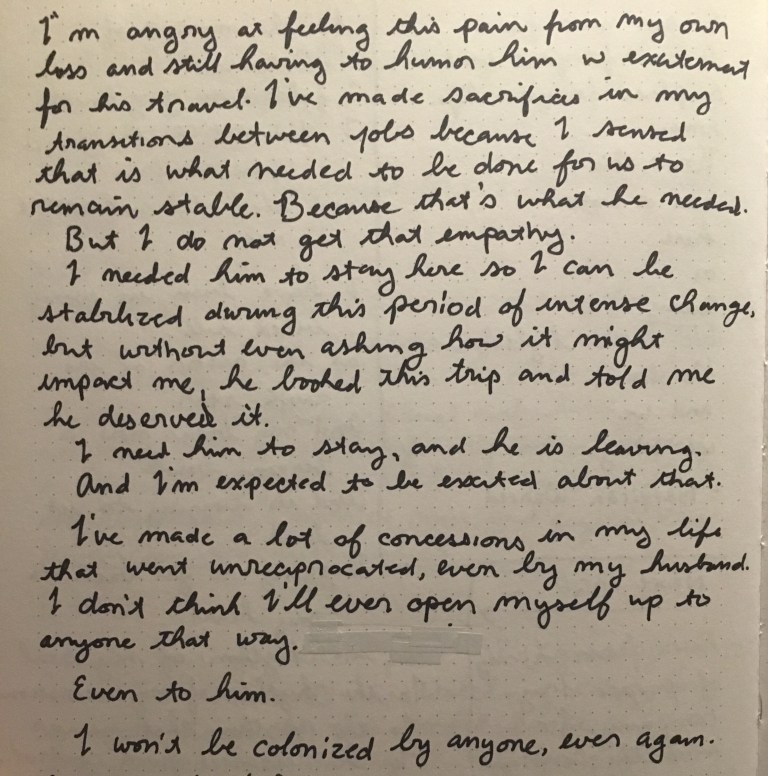 I'm angry at feeling this pain from my own
loss and still having to humor him w excitement
for his travel. I've made sacrifices in my
transitions between jobs because I sensed
that is what needed to be done for us to
remain stable. Because that's what he needed.
But I do not get that empathy.
I needed him to stay here so I can be
stabilized during this period of intense change,
but without even asking how it might
impact me, he booked this trip and told me
he deserved it.
I need him to stay, and he is leaving.
And I'm expected to be excited about that.
I've made a lot of concessions in my life
that went unreciprocated, even by my husband.
I don't think I'll ever open myself up to
anyone that way.
Even to him.
I won't be colonized by anyone, ever again.